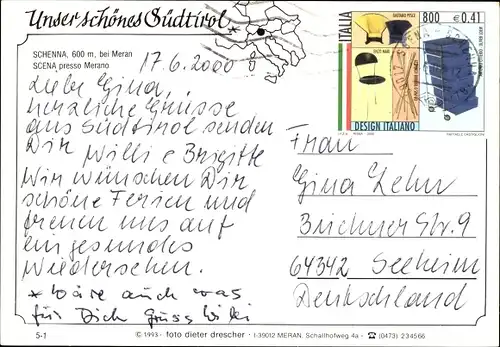 Unser schönes Südtirol
SCHENNA, 600 m, bei Meran
SCENA presso Merano
17.6.2000
Liebe Gina,
herzliche Grüsse
aus Südtirol senden
Dir Willi e Brigitte
Wir wünschen Dir
schöne Ferien und
freuen uns auf
ein gesundes
Wiedersehen.
* Wäre auch was
für Dich Gruss Willi
ITALIA
GAETANO PESCE
800 € 0.41
DESIGN ITALIANO
Frau
Gina Lehr
Str. 9
64342 Seeheim
Deutschland
5-1
© 1993 - foto dieter drescher - I-39012 MERAN, Schallhofweg 4a - ☎ (0473) 234566